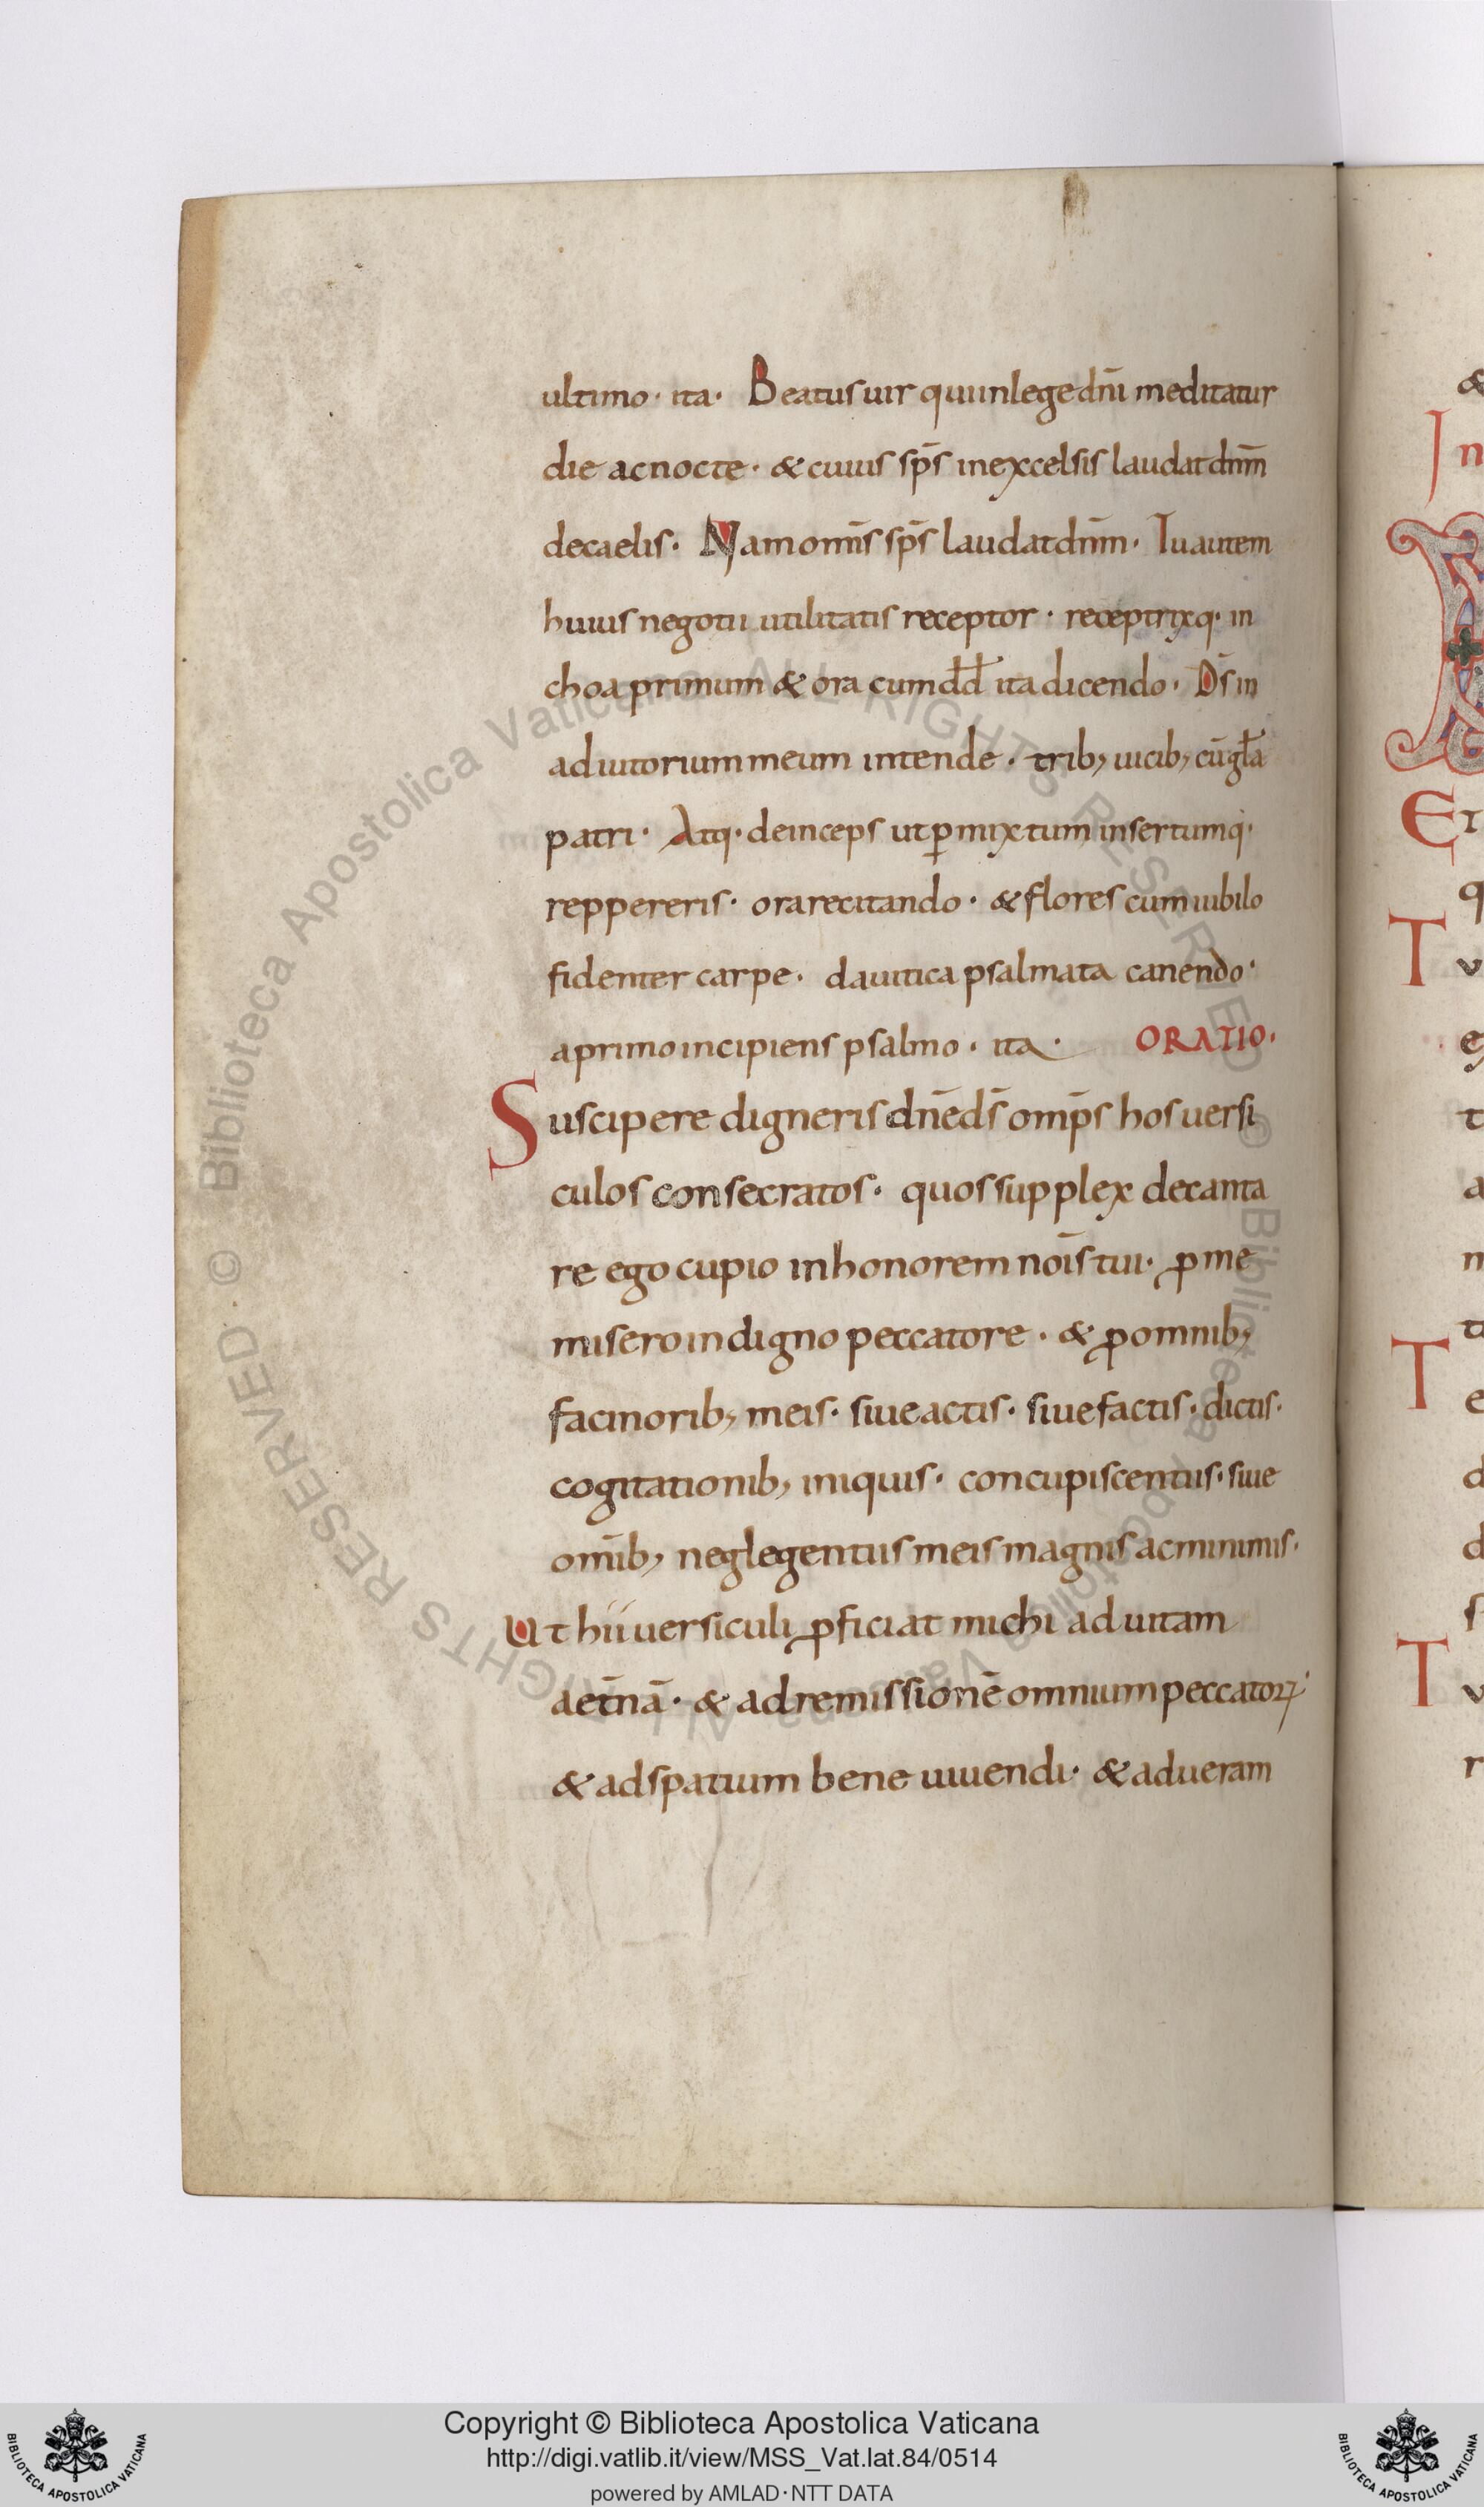 ultimo · ita · Beatus uir qui in lege dñi meditatur
die ac nocte · & cuius sp̄s in excelsis laudat dnm̄
de caelis · Nam omīs sp̄s laudat dnm̄ · Tu autem
huius negotii utilitatis receptor · receptrixq· in
choa primum & ora cum dd̄ ita dicendo · Ds̄ in
adiutorium meum intende · trib; uicib; cū gl̄a
patri · Atq· deinceps ut ꝑmixtum insertumq·
reppereris · ora recitando · & flores cum iubilo
fidenter carpe · dauitica psalmata canendo ·
a primo incipiens psalmo · ita · ORATIO ·
Suscipere digneris dn̄e ds̄ omp̄s hos uersi
culos consecratos · quos supplex decanta
re ego cupio in honorem nōis tui · ꝓ me
misero indigno peccatore · & ꝓ omnib;
facinorib; meis · siue actis · siue factis · dictis ·
cogitationib; iniquis · concupiscentiis · siue
om̄ib; neglegentiis meis magnis ac minimis ·
Ut hii uersiculi ꝓficiat michi ad uitam
aet̄nā · & ad remissionē omnium peccatoꝝ
& ad spatium bene uiuendi · & ad ueram
Copyright © Biblioteca Apostolica Vaticana
http://digi.vatlib.it/view/MSS_Vat.lat.84/0514
powered by AMLAD·NTT DATA